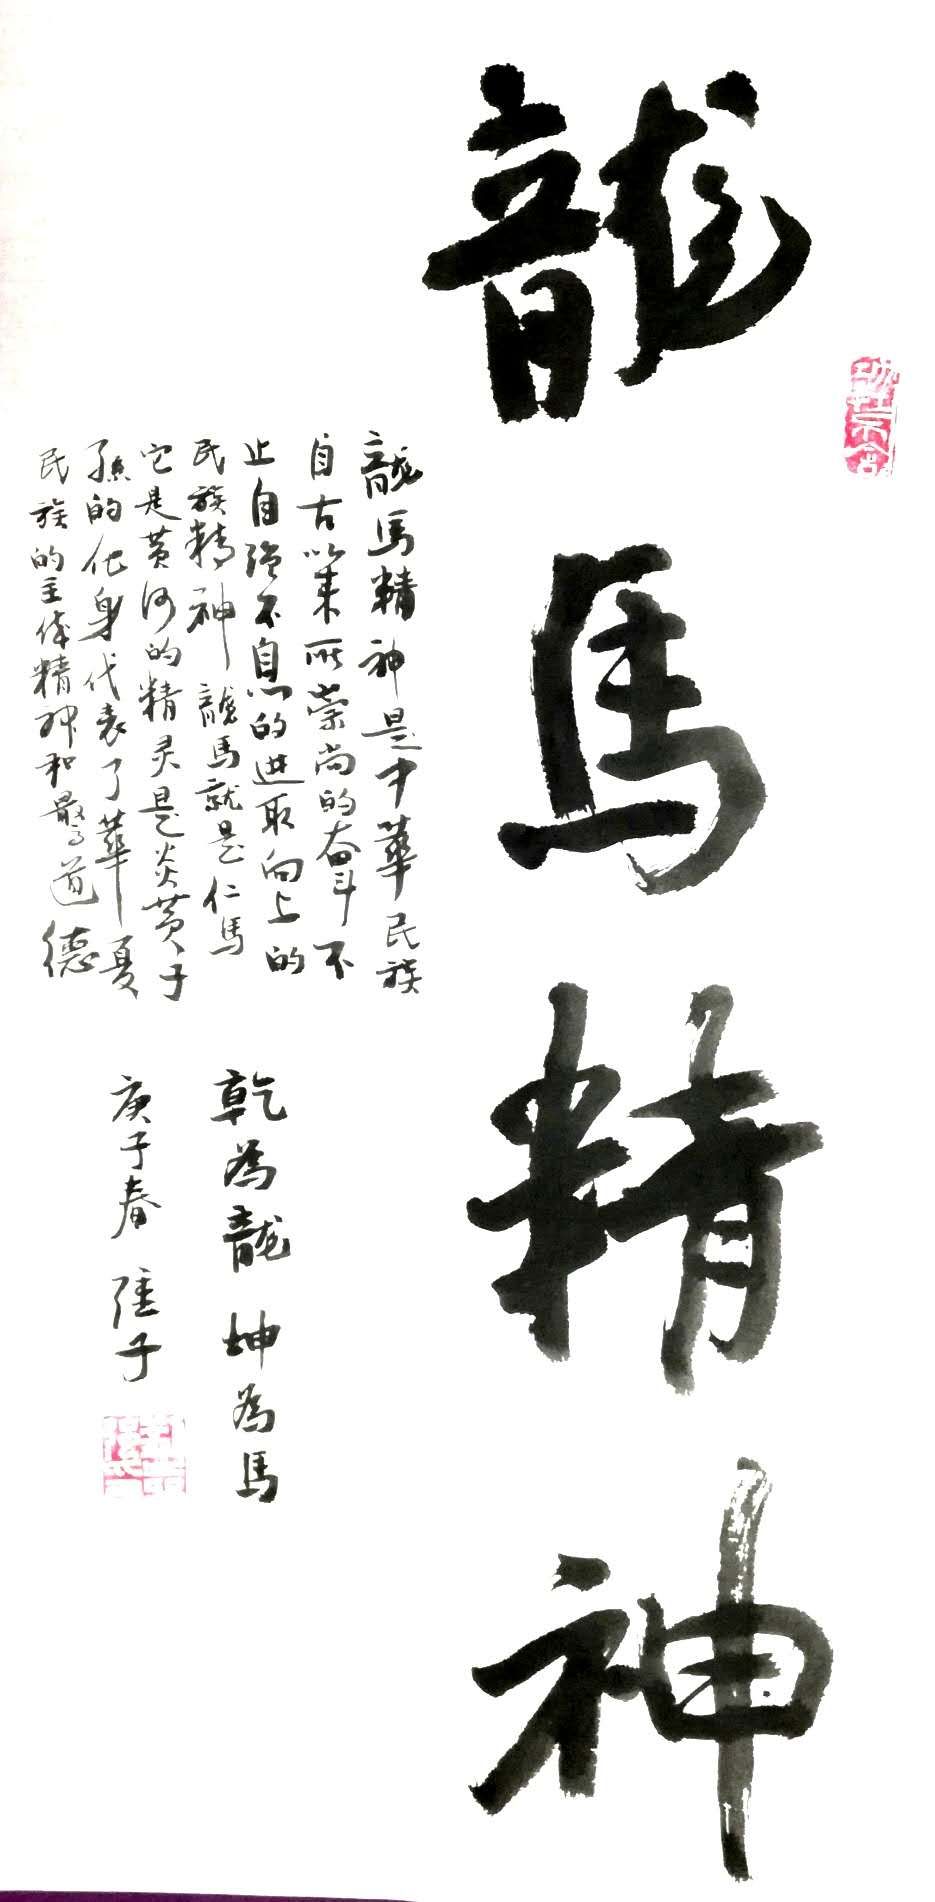 龍馬精神
龍馬精神是中華民族
自古以来所崇尚的奋斗不
止自强不息的进取向上的
民族精神 龍馬就是仁馬
它是黄河的精灵是炎黄子
孫的化身代表了華夏
民族的主体精神和最高道德
乾為龍 坤為馬
庚子春 子